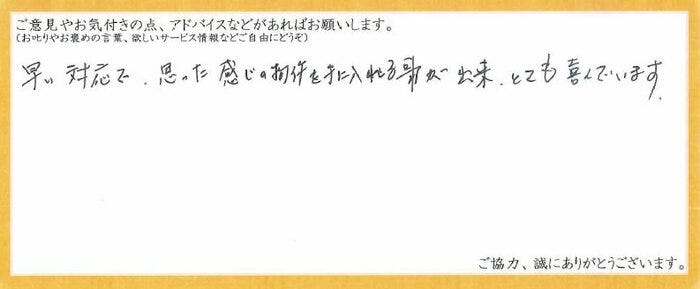 ご意見やお気付きの点、アドバイスなどがあればお願いします。
(お叱りやお褒めの言葉、欲しいサービス情報などご自由にどうぞ)
早い対応で、思った感じの物件を手に入れる事が出来、とても喜んでいます。
ご協力、誠にありがとうございます。